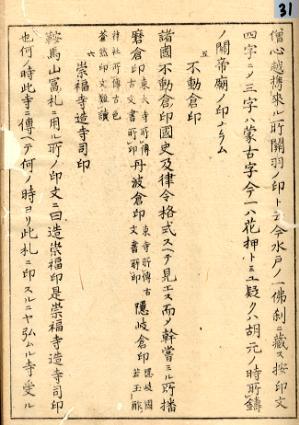 31
僧心越携來ル所關羽ノ印ト云今水戸ノ一佛刹ニ藏ス按印文
四字ニノ三字ハ蒙古字今一ハ花押トミユ疑クハ胡元ノ時所鑄
ノ關帝廟ノ印ナラム
五 不動倉印
諸國不動倉印國史及律令格式スヘテ見エス而メ幹嘗ミル所播
磨倉印 東大寺所傳古文書所印 丹波倉印 東寺所傳古文書所印 隱岐倉印 隱岐國若玉酢
神社所傳古色蒼然印文難讀
六 崇福寺造寺司印
鞍馬山冨札ニ用ル所ノ印文ニ曰造崇福印是崇福寺造寺司印
也何ノ時此寺ニ傳ヘテ何ノ時ヨリ此札ニ印スルニヤ弘ムル寺受ル